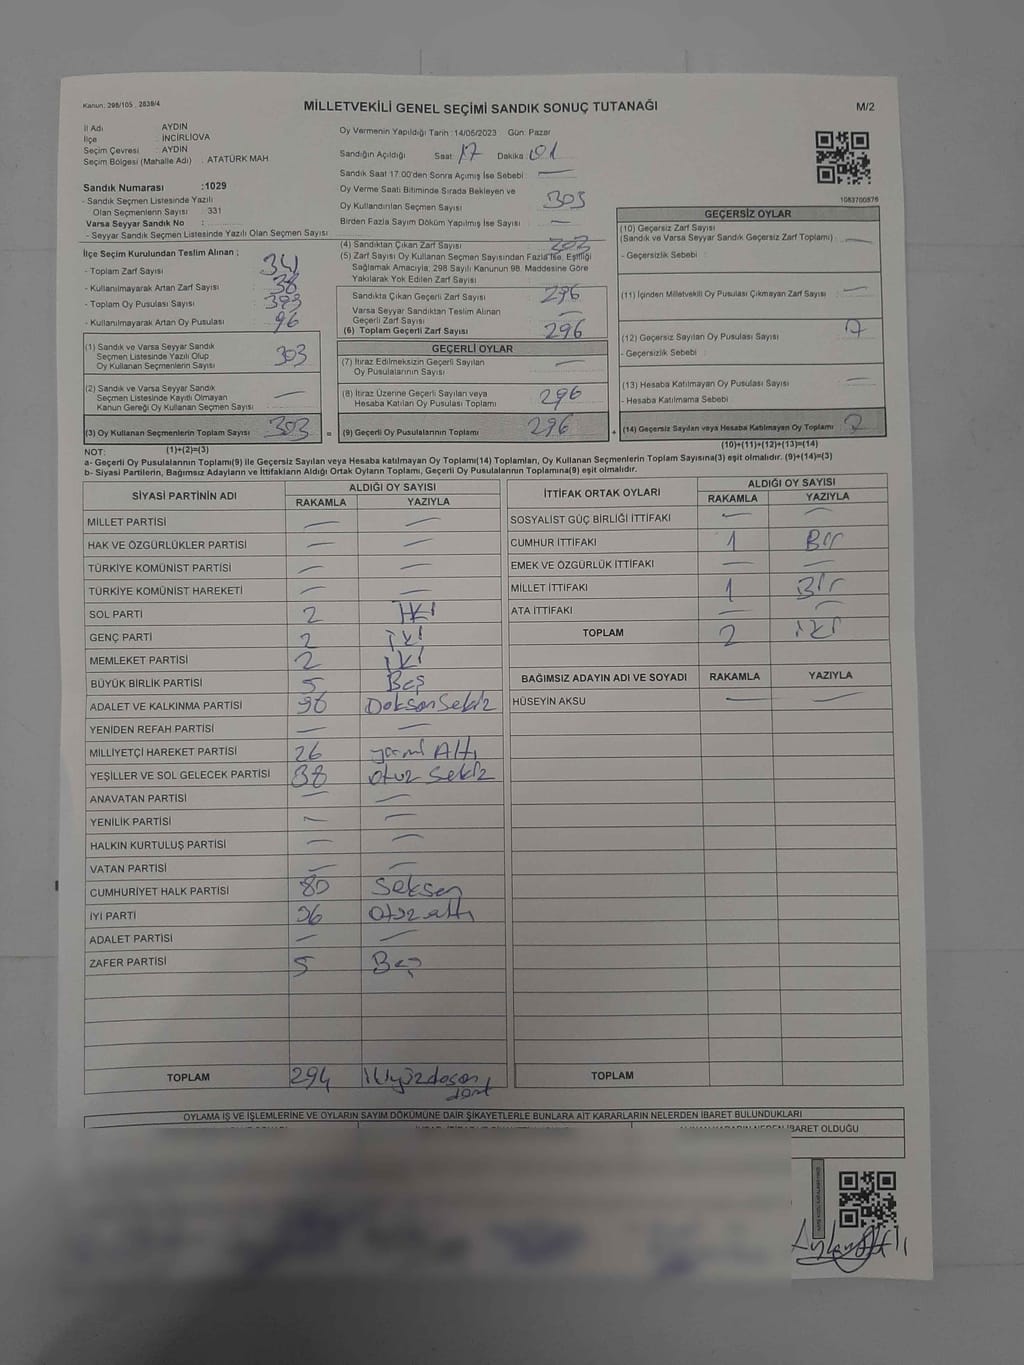 Kanun: 298/105 , 2839/4
MİLLETVEKİLİ GENEL SEÇİMİ SANDIK SONUÇ TUTANAĞI
M/2
İl Adı AYDIN
İlçe İNCİRLİOVA
Seçim Çevresi : AYDIN
Seçim Bölgesi (Mahalle Adı) : ATATÜRK MAH.
Sandık Numarası :1029
- Sandık Seçmen Listesinde Yazılı
Olan Seçmenlerin Sayısı : 331
Varsa Seyyar Sandık No :
- Seyyar Sandık Seçmen Listesinde Yazılı Olan Seçmen Sayısı :
Oy Vermenin Yapıldığı Tarih :14/05/2023 Gün: Pazar
Sandığın Açıldığı Saat: 17 Dakika: 01
Sandık Saat 17.00'den Sonra Açılmış İse Sebebi : —
Oy Verme Saati Bitiminde Sırada Bekleyen ve
Oy Kullandırılan Seçmen Sayısı 303
Birden Fazla Sayım Döküm Yapılmış İse Sayısı : —
1083700876
İlçe Seçim Kurulundan Teslim Alınan ;
- Toplam Zarf Sayısı 341
- Kullanılmayarak Artan Zarf Sayısı : 38
- Toplam Oy Pusulası Sayısı : 393
- Kullanılmayarak Artan Oy Pusulası : 96
(1) Sandık ve Varsa Seyyar Sandık
Seçmen Listesinde Yazılı Olup
Oy Kullanan Seçmenlerin Sayısı 303
(2) Sandık ve Varsa Seyyar Sandık
Seçmen Listesinde Kayıtlı Olmayan
Kanun Gereği Oy Kullanan Seçmen Sayısı —
(3) Oy Kullanan Seçmenlerin Toplam Sayısı 303
(4) Sandıktan Çıkan Zarf Sayısı 303
(5) Zarf Sayısı Oy Kullanan Seçmen Sayısından Fazla İse, Eşitliği
Sağlamak Amacıyla; 298 Sayılı Kanunun 98. Maddesine Göre
Yakılarak Yok Edilen Zarf Sayısı
Sandıkta Çıkan Geçerli Zarf Sayısı 296
Varsa Seyyar Sandıktan Teslim Alınan
Geçerli Zarf Sayısı —
(6) Toplam Geçerli Zarf Sayısı 296
GEÇERLİ OYLAR
(7) İtiraz Edilmeksizin Geçerli Sayılan
Oy Pusulalarının Sayısı : —
(8) İtiraz Üzerine Geçerli Sayılan veya
Hesaba Katılan Oy Pusulası Toplamı 296
= (9) Geçerli Oy Pusulalarının Toplamı 296
GEÇERSİZ OYLAR
(10) Geçersiz Zarf Sayısı
(Sandık ve Varsa Seyyar Sandık Geçersiz Zarf Toplamı) : —
- Geçersizlik Sebebi :
(11) İçinden Milletvekili Oy Pusulası Çıkmayan Zarf Sayısı : —
(12) Geçersiz Sayılan Oy Pusulası Sayısı : 7
- Geçersizlik Sebebi :
(13) Hesaba Katılmayan Oy Pusulası Sayısı : —
- Hesaba Katılmama Sebebi
+ (14) Geçersiz Sayılan veya Hesaba Katılmayan Oy Toplamı
NOT: (1)+(2)=(3)
(10)+(11)+(12)+(13)=(14)
a- Geçerli Oy Pusulalarının Toplamı(9) ile Geçersiz Sayılan veya Hesaba Katılmayan Oy Toplamı(14) Toplamları, Oy Kullanan Seçmenlerin Toplam Sayısına(3) eşit olmalıdır. (9)+(14)=(3)
b- Siyasi Partilerin, Bağımsız Adayların ve İttifakların Aldığı Ortak Oyların Toplamı, Geçerli Oy Pusulalarının Toplamına(9) eşit olmalıdır.
SİYASİ PARTİNİN ADI ALDIĞI OY SAYISI
RAKAMLA YAZIYLA
MİLLET PARTİSİ — —
HAK VE ÖZGÜRLÜKLER PARTİSİ — —
TÜRKİYE KOMÜNİST PARTİSİ — —
TÜRKİYE KOMÜNİST HAREKETİ — —
SOL PARTİ 2 İKİ
GENÇ PARTİ 2 iki
MEMLEKET PARTİSİ 2 iki
BÜYÜK BİRLİK PARTİSİ 5 Beş
ADALET VE KALKINMA PARTİSİ 98 Doksan Sekiz
YENİDEN REFAH PARTİSİ — —
MİLLİYETÇİ HAREKET PARTİSİ 26 yirmi Altı
YEŞİLLER VE SOL GELECEK PARTİSİ 38 otuz sekiz
ANAVATAN PARTİSİ — —
YENİLİK PARTİSİ — —
HALKIN KURTULUŞ PARTİSİ — —
VATAN PARTİSİ — —
CUMHURİYET HALK PARTİSİ 80 Seksen
İYİ PARTİ 36 Otuz altı
ADALET PARTİSİ — —
ZAFER PARTİSİ 5 Beş
TOPLAM 294 ikiyüzdoksan
dört
İTTİFAK ORTAK OYLARI ALDIĞI OY SAYISI
RAKAMLA YAZIYLA
SOSYALİST GÜÇ BİRLİĞİ İTTİFAKI — —
CUMHUR İTTİFAKI 1 Bir
EMEK VE ÖZGÜRLÜK İTTİFAKI — —
MİLLET İTTİFAKI 1 Bir
ATA İTTİFAKI — —
TOPLAM 2 iki
BAĞIMSIZ ADAYIN ADI VE SOYADI RAKAMLA YAZIYLA
HÜSEYİN AKSU — —
TOPLAM
OYLAMA İŞ VE İŞLEMLERİNE VE OYLARIN SAYIM DÖKÜMÜNE DAİR ŞİKAYETLERLE BUNLARA AİT KARARLARIN NELERDEN İBARET BULUNDUKLARI
İBARET OLDUĞU